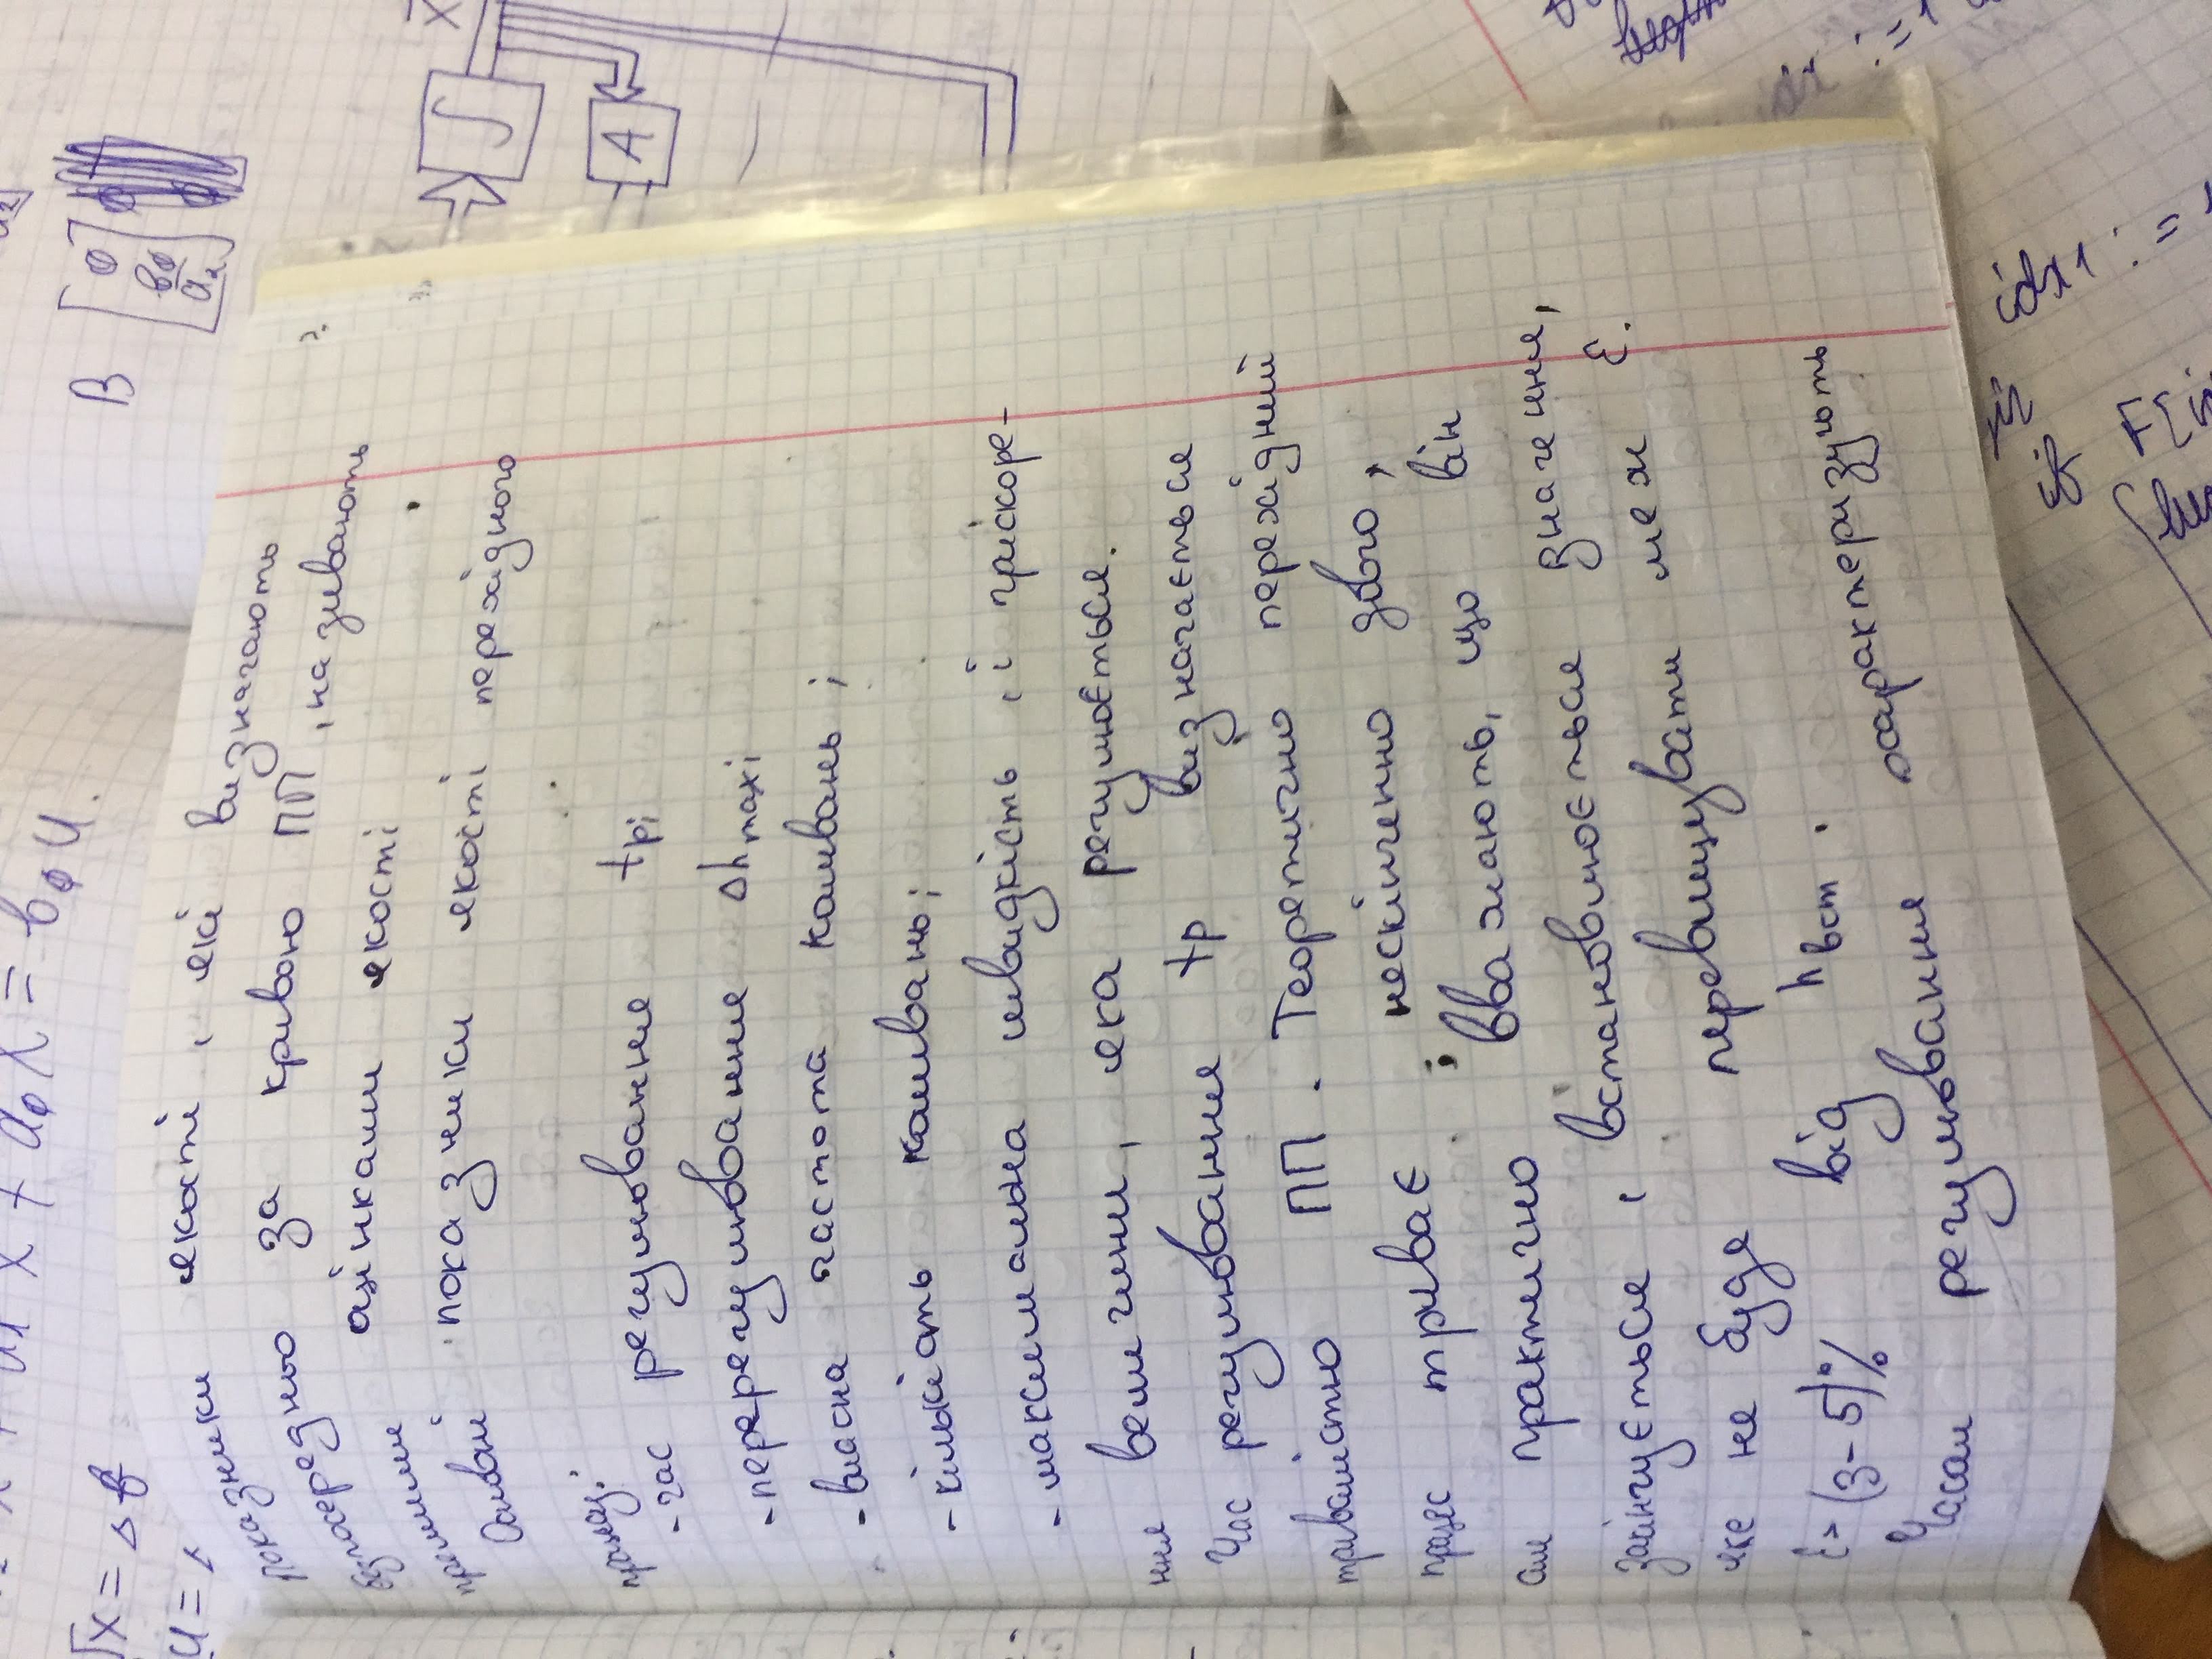 а₁ х + а₀ х = в₀ и.
х = Δ
и =
В [0 в₀ а₂]
Показники якості, які визначають
безпосередньо за кривою ПП, називають
прямими оцінками якості
Основні показники якості перехідного
процесу:
- час регулювання tр;
- перерегулювання Δhmax;
- власна частота коливань;
- кількість коливань;
- максимальна швидкість, і пріскоре-
ння величини, яка регулюється.
Час регулювання tр визначається
тривалістю ПП. Теоретично перехідний
процес триває нескінченно довго,
але практично вважають, що він
закінчується, встановлюється значення,
яке не буде перевищувати меж ε.
ε> (3-5)% від hвст.
Часом регулювання характеризують
∫
X
A
idx1 :=
if